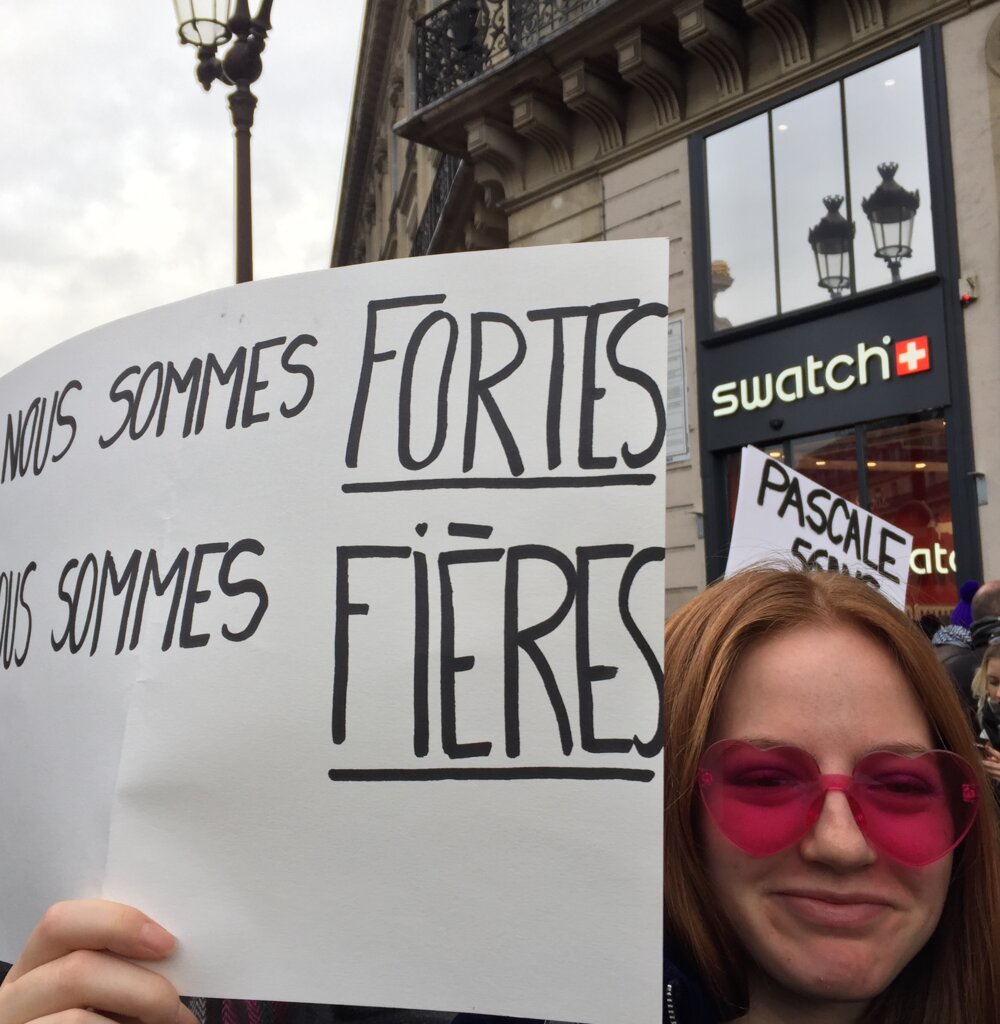 NOUS SOMMES FORTES
SOMMES FIÈRES
swatch
PASCALE